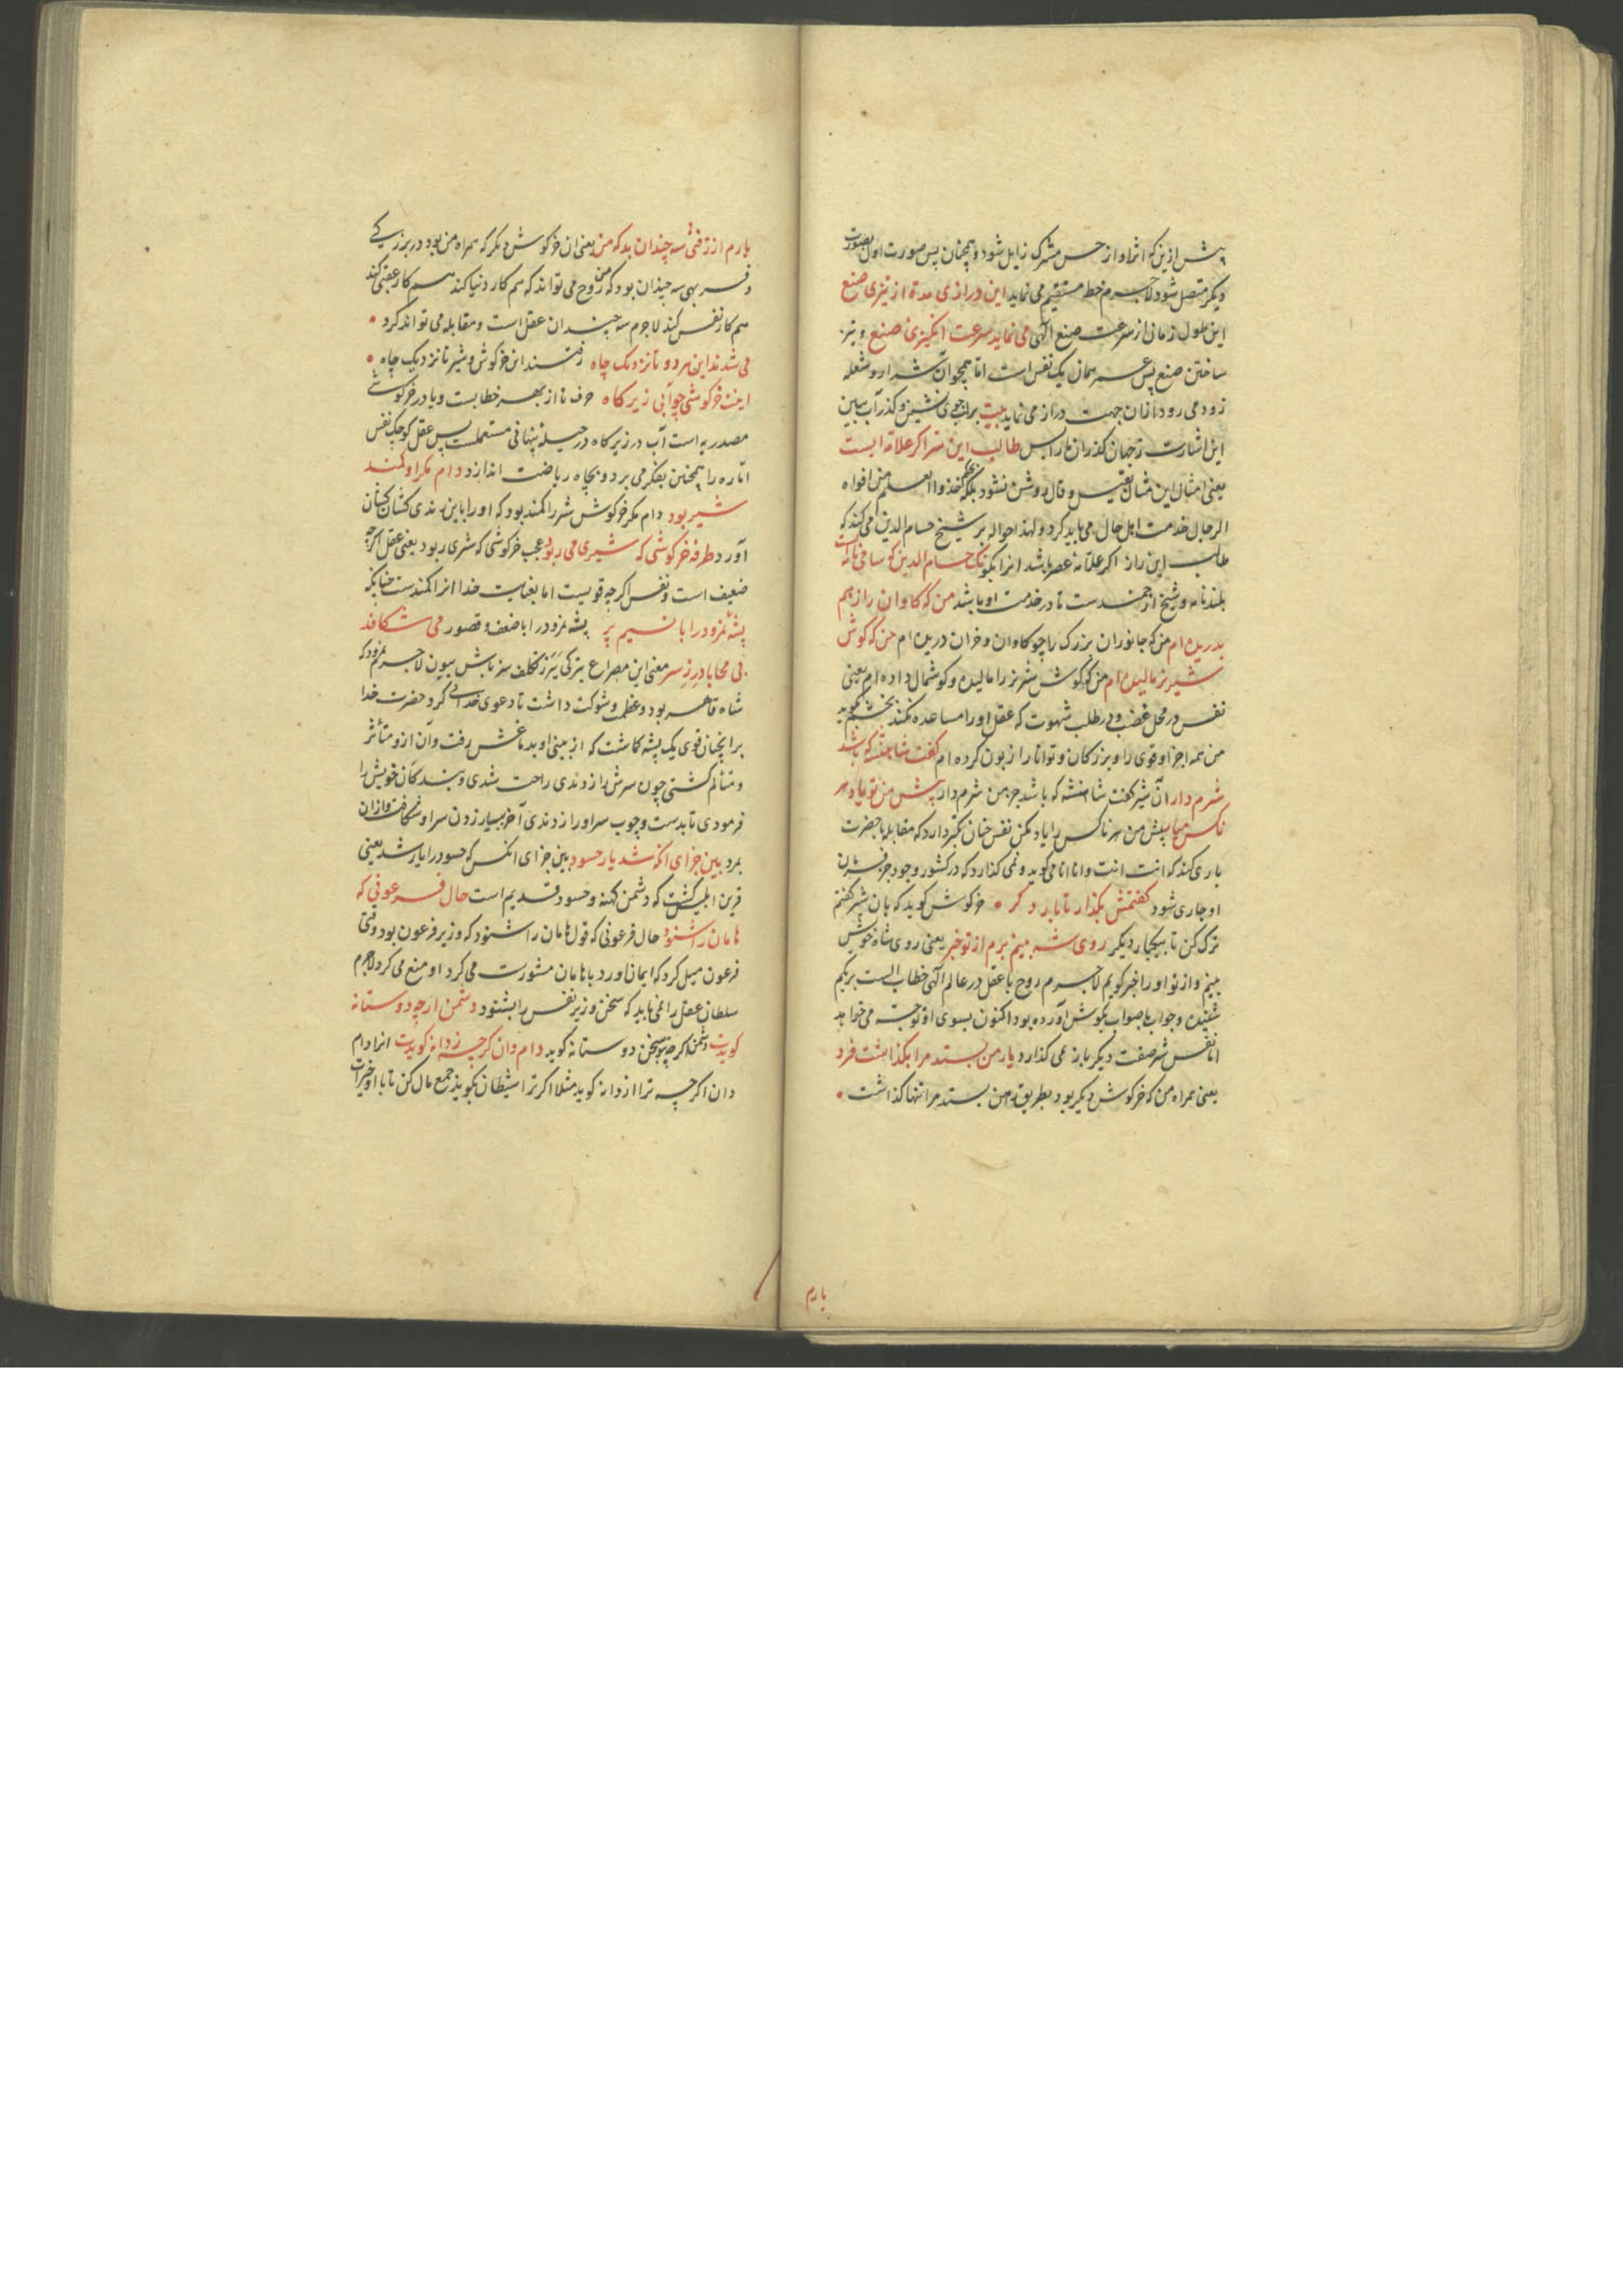 پیش ازین که اثر او از حس مشترک زایل شود و همچنان پس صورت اول بصورت
دیگر متصل شود لاجرم خط مستقیم می نماید این درازی مدة از تیزی صنع
این طول زمان از سرعت صنع الهی می نماید سرعت انگیزی صنع و تیز
ساختن صنع پس عمر همان یک نفس است اما همچو آن شرار و شعله
زود می رود ازان جهت دراز می نماید بیت بر لب جوی نشین و گذر آب ببین
این اشارت ز جهان گذران ما را بس طالب این سر اگر علامه ایست
یعنی امثال این مثال بقیل و قال روشن نشود بلکه بحکم خذوا العلم من افواه
الرجال خدمت اهل حال می باید کرد و لهذا حواله بر شیخ حسام الدین می کند که
طالب این راز اگر علامه عصر باشد انرا بگو نک حسام الدین که سامی نامه است
بلند نامه و شیخ ارجمندست تا در خدمت او باشد من که گاوان را ز هم
بدریده ام من که جانوران بزرگ را چو گاوان و خران دریده ام من که گوش
شیر نر مالیده ام من که گوش شیر نر را مالیده و گوشمال داده ام یعنی
نفس در محل غضب و در طلب شهوت که عقل او را مساعده نکند بخشم گوید
من همه اجزاء قوی را و بزرگان و توانا را زبون کرده ام گفت شاهنشه که باشد
شرم دار آن شیر گفت شاهنشه که باشد جز من شرم دار پیش من تو یاد هر
ناکس میار پیش من هر ناکس را یاد مکن نفس چنان تکبر دارد که مقابله با حضرت
باری کند که انت انت و انا انا می گوید و نمی گذارد که در کشور وجود جز فرمان
او جاری شود گفتمش بگذار تا بار دگر • خرگوش گوید که بان شیر گفتم
ترک کن تا بیکبار دیگر روی شه بینم برم از تو خبر یعنی روی شاه خویش
بینم و از تو او را خبر گویم لاجرم روح با عقل در عالم الهی خطاب الست بربکم
شنیده و جواب با صواب بگوش آورده بود اکنون بسوی او توجه می خواهد
اما نفس شیر صفت دیگر باز نمی گذارد یار من بستد مرا بگذاشت فرد
یعنی همراه من که خرگوش دیگر بود بطریق رهن بستد مرا تنها گذاشت •
یارم
یارم از زفتی سه چندان بد که من یعنی ان خرگوش دیگر که همراه من بود در بزرگی
و فربهی سه چندان بود که من روح می تواند که هم کار دنیا کند هم کار عقبی کند
هم کار نفس کند لاجرم سه چندان عقل است و مقابله می تواند کرد •
می شدند این هر دو تا نزدیک چاه رفتند این خرگوش و شیر تا نزدیک چاه •
اینت خرگوشی چو آبی زیر کاه حرف تا از بهر خطابست و یا در خرگوشی
مصدریه است آب در زیر کاه در حیله پنهانی مستعملست پس عقل کوچک نفس
اماره را همچنین بفکر می برد و بچاه ریاضت اندازد دام مکر او کمند
شیر بود دام مکر خرگوش شیر را کمند بود که او را باین رندی کشان کشان
آورد طرفه خرگوشی که شیری می ربود عجب خرگوشی که شیری ربود یعنی عقل اگرچه
ضعیف است و نفس اگرچه قویست اما بعنایت خدا انرا کمندست چنانکه
پشه نمرود را با نیم پر پشه نمرود را با ضعف و قصور می شکافد
بی محابا درز سر معنی این مصراع بترکی تکلف سز باش بیون لاجرم نمرود که
شاه قاهر بود و عظمت و شوکت داشت تا دعوی خدایی کرد حضرت خدا
بر انچنان قوی یک پشه گماشت که از بینی او بدماغش رفت و آن ازو متأثر
و متألم گشتی چون سرش را زدندی راحت شدی و بندگان خویش را
فرمودی تا بدست و چوب سر او را زدندی آخر بسیار زدن سر او شکافت و ازان
بمرد بین جزای انکه شد یار حسود ببین جزای انکس که حسود را یار شد یعنی
قرین ابلیس گشت که دشمن کهنه و حسود قدیم است حال فرعونی که
هامان را شنود حال فرعونی که قول هامان را شنود که وزیر فرعون بود وقتی
فرعون میل کرد که ایمان اورد با هامان مشورت می کرد او منع می کرد لاجرم
سلطان عقل را نمی باید که سخن وزیر نفس را بشنود دشمن ارچه دوستانه
گویدت دشمن اگرچه بتو سخن دوستانه گوید دام دان گرچه ز دانه گویدت انرا دام
دان اگرچه ترا از دانه گوید مثلا اگر ترا شیطان بگوید جمع مال کن تا با او خیرات